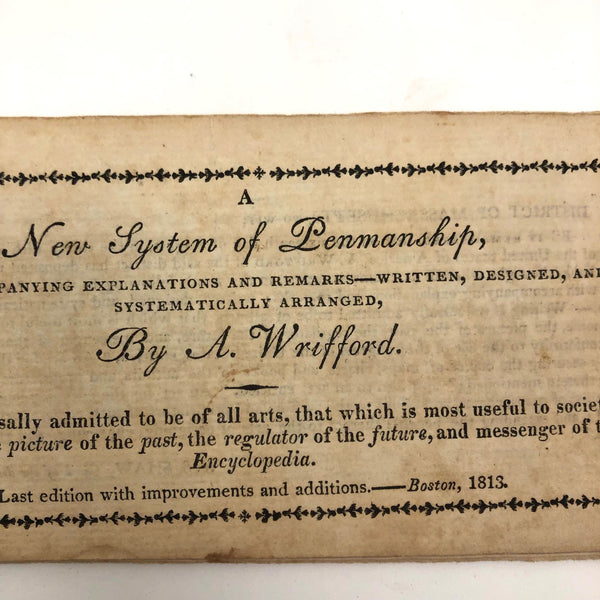 A
New System of Penmanship,
PANYING EXPLANATIONS AND REMARKS—WRITTEN, DESIGNED, AND
SYSTEMATICALLY ARRANGED,
By A. Wrifford.
sally admitted to be of all arts, that which is most useful to societ
picture of the past, the regulator of the future, and messenger of t
Encyclopedia.
Last edition with improvements and additions.——Boston, 1813.